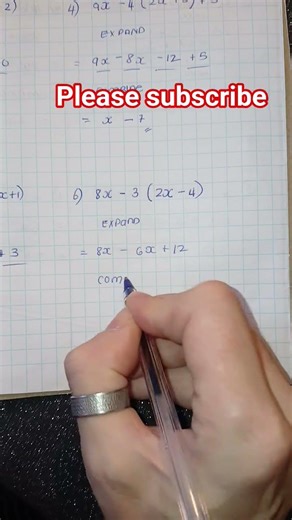 2)
4) 9x - 4 (2x + 3) + 5
EXPAND
= 9x - 8x - 12 + 5
Please subscribe
= x - 7
x+1)
6) 8x - 3 (2x - 4)
EXPAND
+ 3
= 8x - 6x + 12
COM